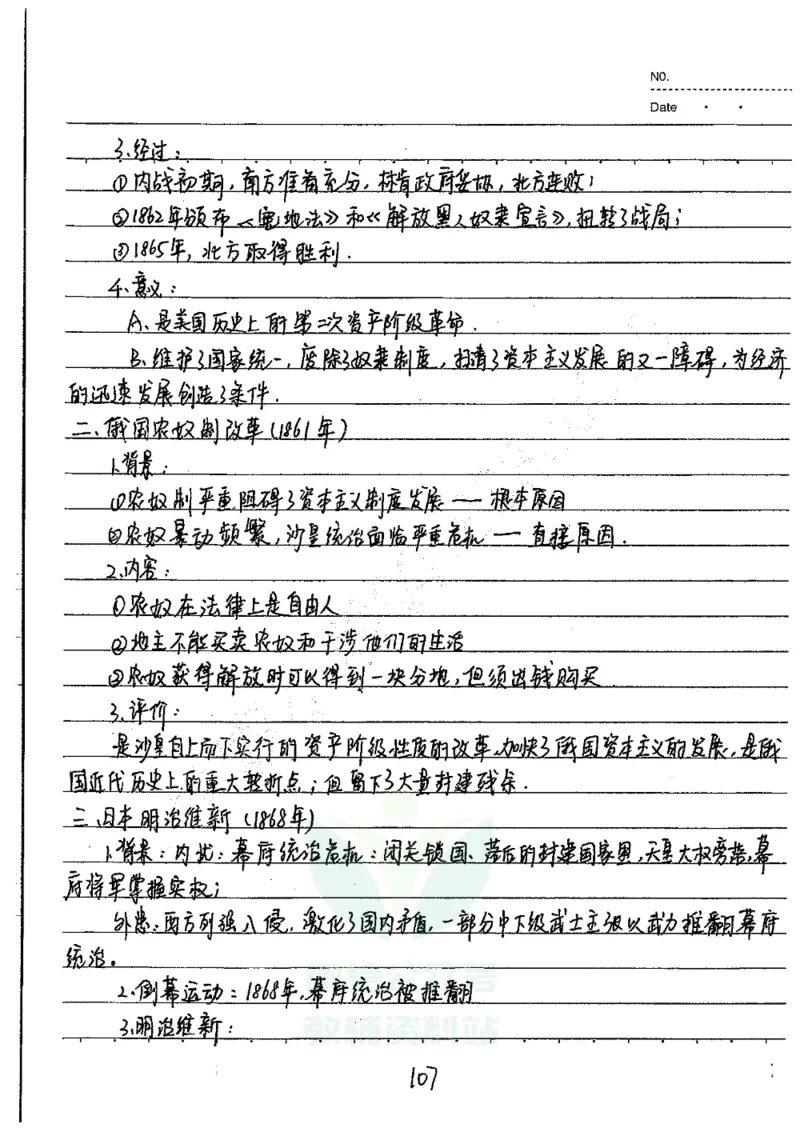 NO.
Date
3.经过：
①内战初期，南方准备充分，林肯政府妥协，北方连败；
②1862年颁布《宅地法》和《解放黑人奴隶宣言》，扭转了战局；
③1865年，北方取得胜利.
4.意义：
A、是美国历史上的第二次资产阶级革命.
B、维护了国家统一，废除了奴隶制度，扫清了资本主义发展的又一障碍，为经济
的迅速发展创造了条件.
二、俄国农奴制改革(1861年)
1.背景：
①农奴制严重阻碍了资本主义制度发展——根本原因
②农奴暴动频繁，沙皇统治面临严重危机——直接原因.
2.内容：
①农奴在法律上是自由人
②地主不能买卖农奴和干涉他们的生活
③农奴获得解放时可以得到一块分地，但须出钱购买
3.评价：
是沙皇自上而下实行的资产阶级性质的改革，加快了俄国资本主义的发展，是俄
国近代历史上的重大转折点；但留下了大量封建残余.
三、日本明治维新(1868年)
1.背景：内忧：幕府统治危机：闭关锁国、落后的封建国家里，天皇大权旁落，幕
府将军掌握实权；
外患：西方列强入侵，激化了国内矛盾，一部分中下级武士主张以武力推翻幕府
统治。
2.倒幕运动：1868年，幕府统治被推翻
3.明治维新：
教辅资料站
107